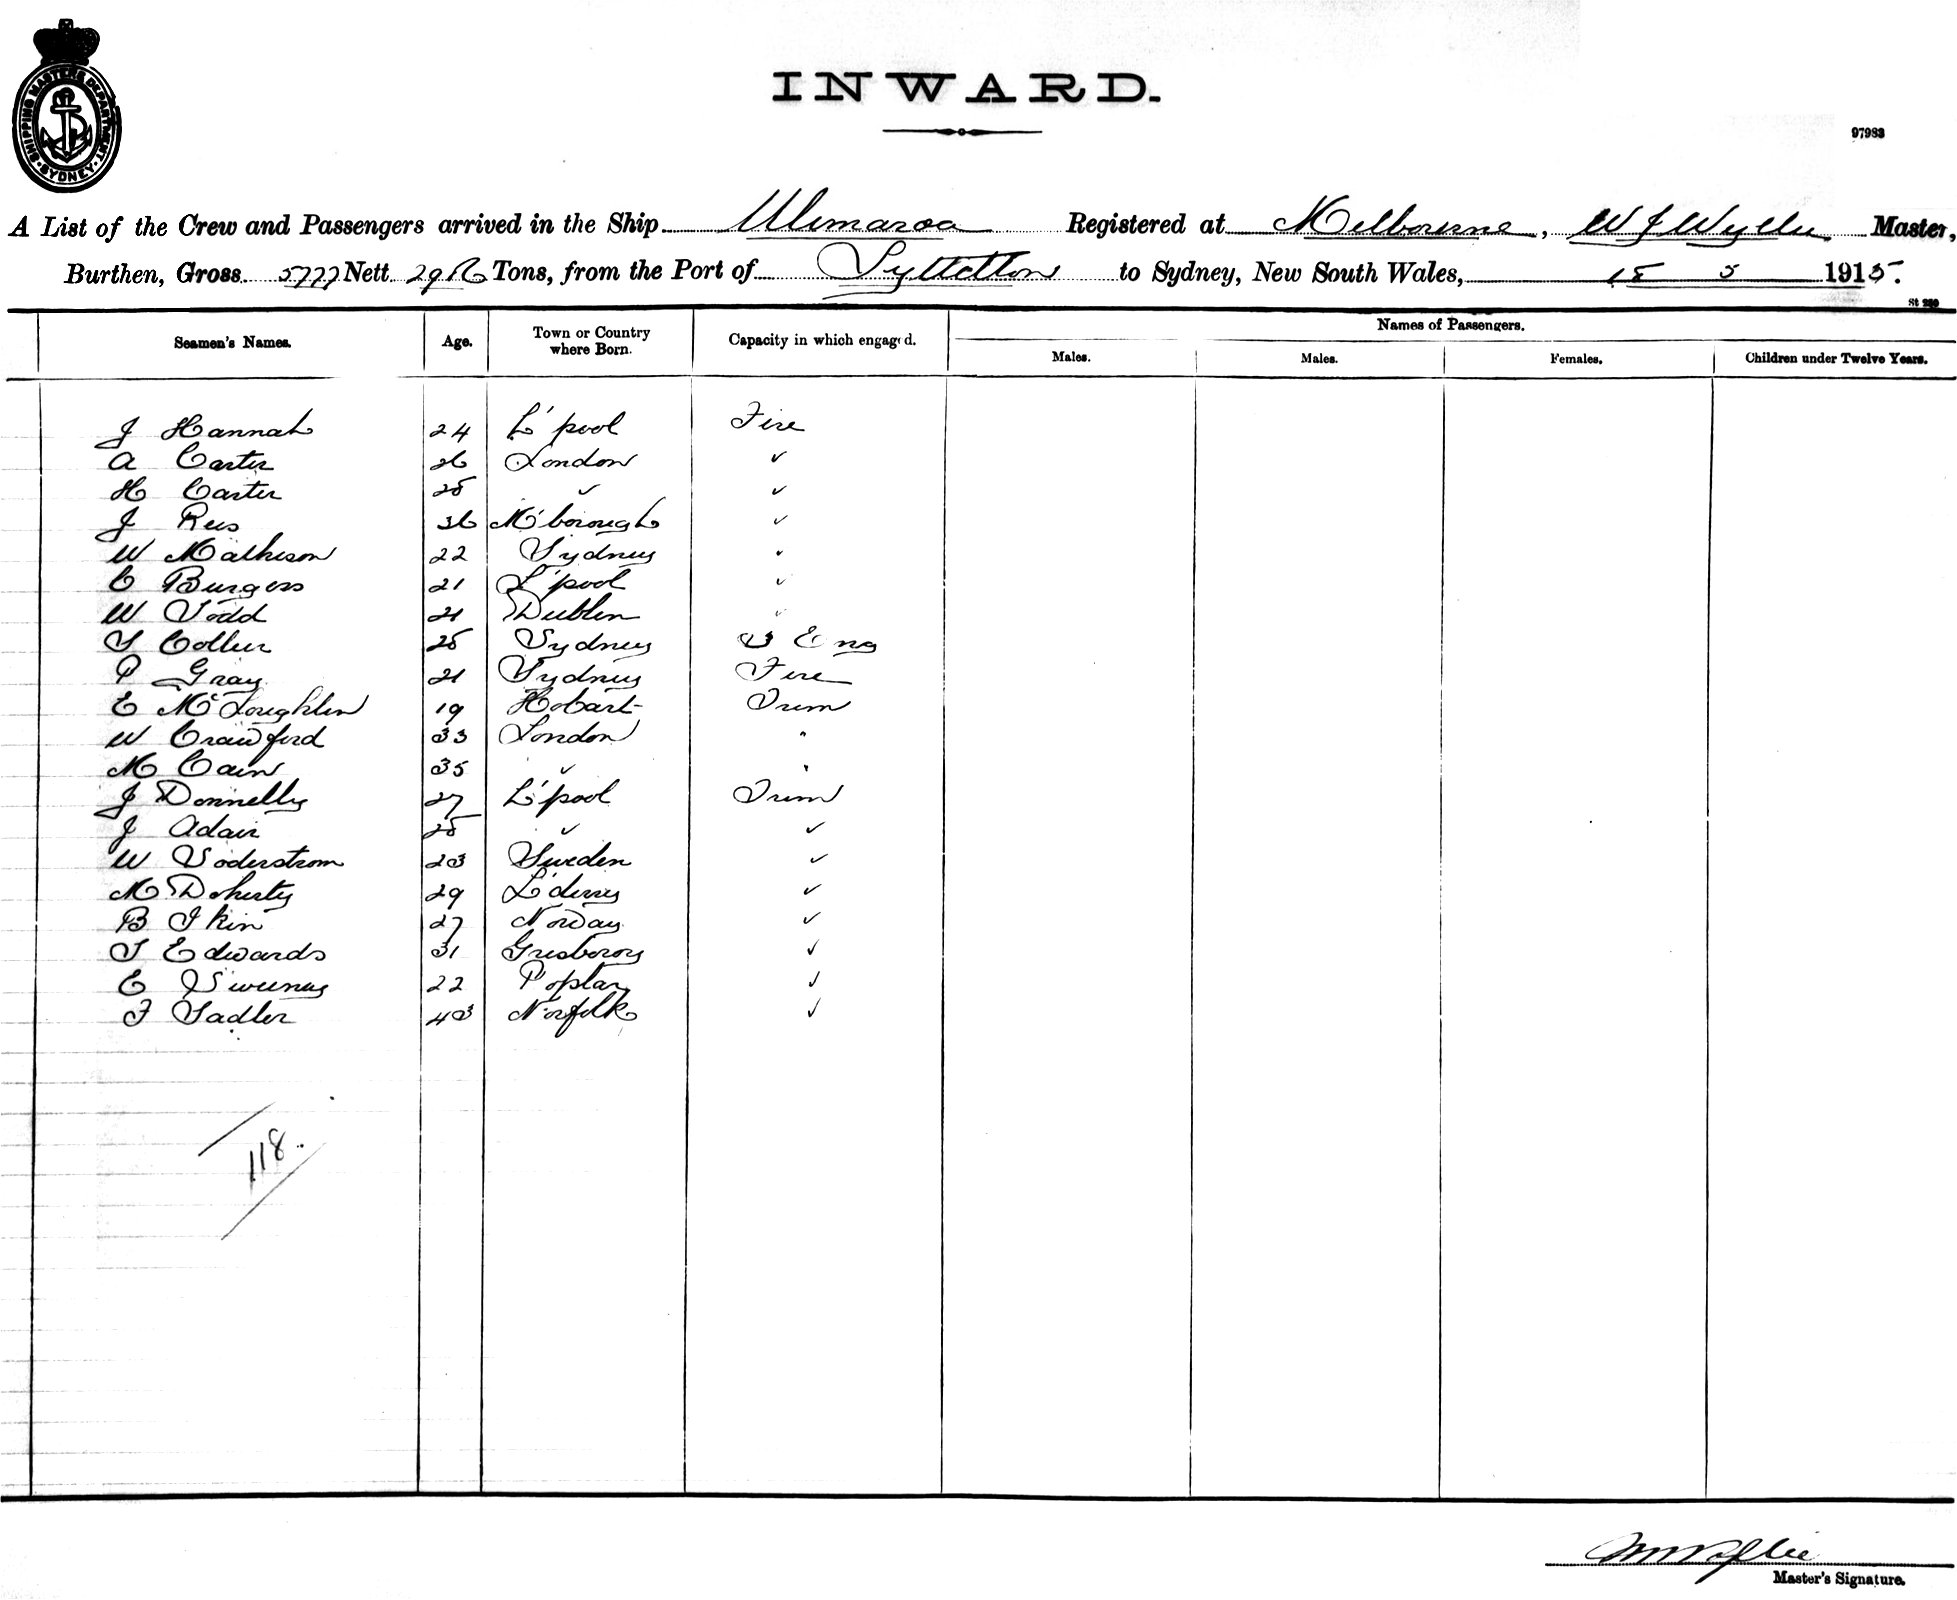 SHIPPING MASTERS DEPARTMENT. SYDNEY.
INWARD.
97983
A List of the Crew and Passengers arrived in the Ship Ulimaroa Registered at Melbourne, W J Wyllie Master,
Burthen, Gross 5777 Nett Tons, from the Port of Lyttelton to Sydney, New South Wales, 5 1915.
St 280
Seamen's Names. Age. Town or Country where Born. Capacity in which engaged. Names of Passengers.
Males. Males. Females. Children under Twelve Years.
J Hannah 24 L'pool Fire
A Carter 26 London ✓
H Carter 25 ✓ ✓
J Rees 36 M'borough ✓
W Mathison 22 Sydney ✓
C Burgess 21 L'pool ✓
W Todd 21 Dublin ✓
S Collier 25 Sydney 3 Eng
P Gray 21 Sydney Fire
E McLoughlin 19 Hobart Trim
W Crawford 33 London "
M Cain 35 ✓ "
J Donnelly 27 L'pool Trim
J Adair 25 ✓ ✓
W Soderstrom 23 Sweden ✓
M Doherty 29 L'derry ✓
B Ikin 27 Norway ✓
T Edwards 31 ✓
E Sweeney 22 Poplar ✓
F Sadler 43 Norfolk ✓
118.
Master's Signature.